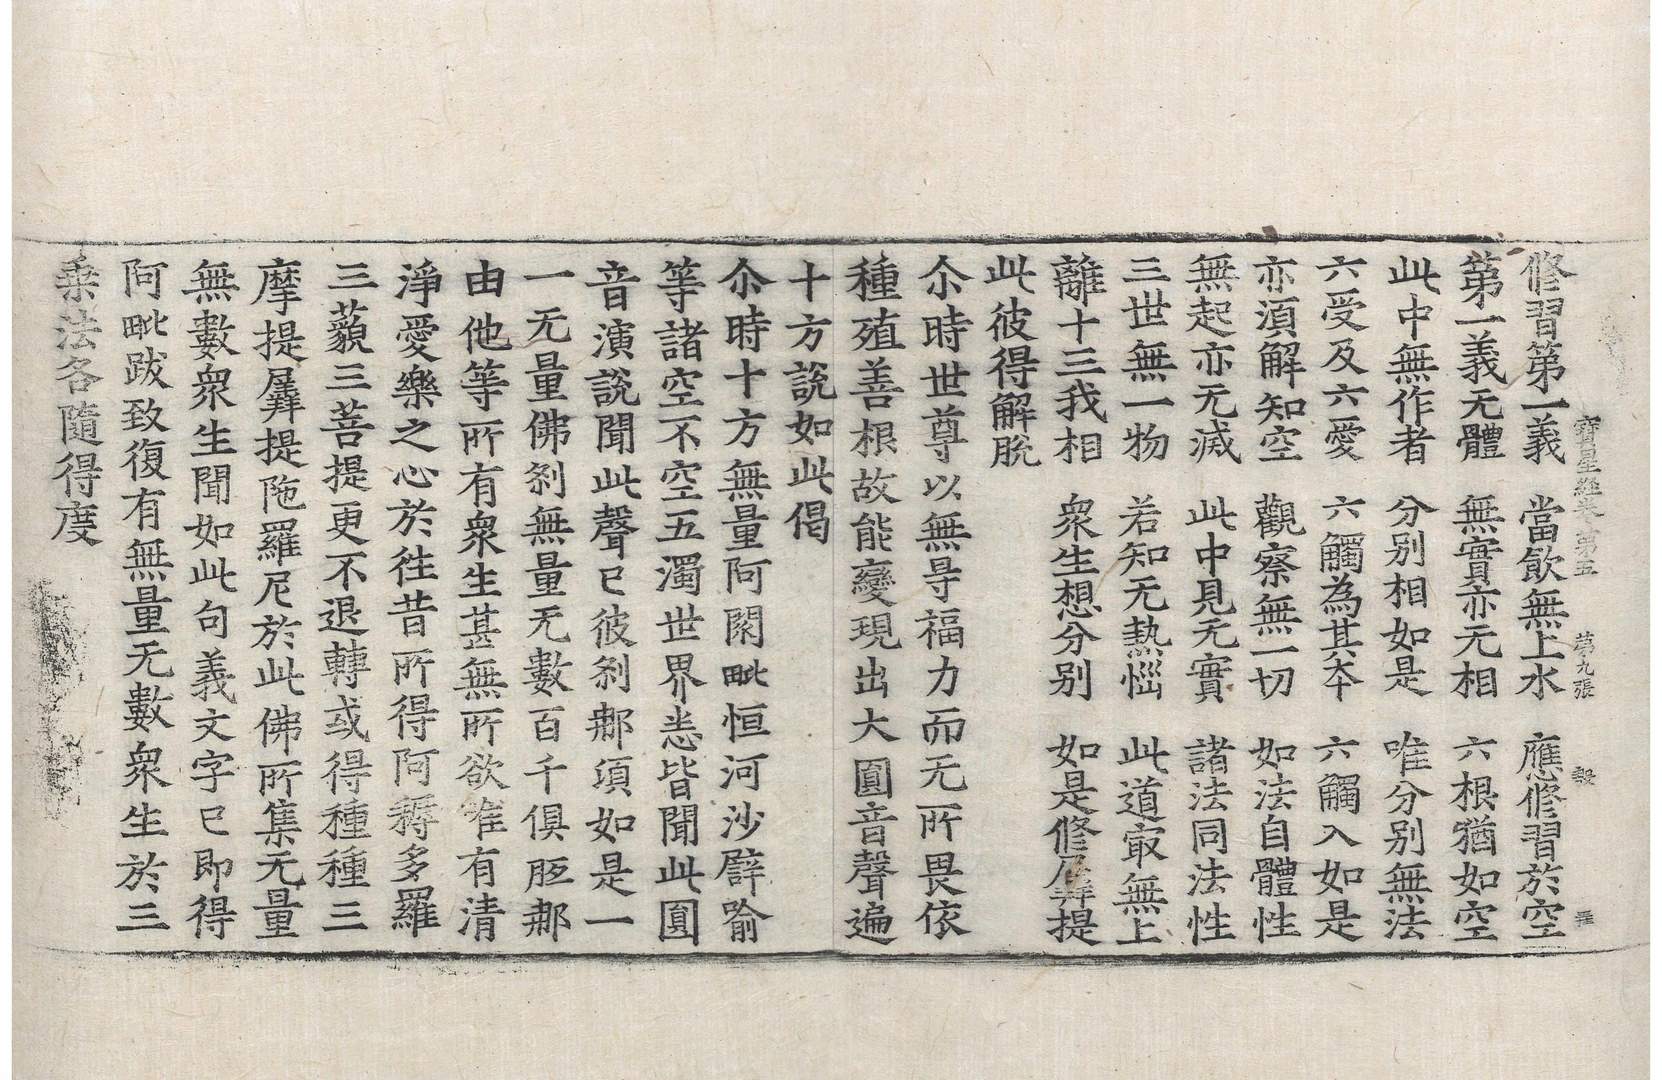 寶星經卷第五 第九張 㲉
修習第一義 當飲無上水 應修習於空
第一義无體 無實亦无相 六根猶如空
此中無作者 分別相如是 唯分別無法
六受及六愛 六觸為其本 六觸入如是
亦湏解知空 觀察無一切 如法自體性
無起亦无滅 此中見无實 諸法同法性
三世無一物 若知无熱惱 此道㝡無上
離十三我相 衆生想分别 如是修羼提
此彼得解脫
尒時世尊以無㝵福力而无所畏依
種殖善根故能變現出大圓音聲遍
十方說如此偈
尒時十方無量阿閦毗恒河沙譬喻
等諸空不空五濁世界悉皆聞此圓
音演說聞此聲已彼刹䣀湏如是一
一无量佛刹無量无數百千俱胝䣀
由他等所有衆生甚無所欲唯有清
淨愛樂之心於往昔所得阿耨多羅
三藐三菩提更不退轉或得種種三
摩提羼提陁羅尼於此佛所集无量
無數衆生聞如此句義文字已即得
阿毗跋致復有無量无數衆生於三
乗法各隨得度